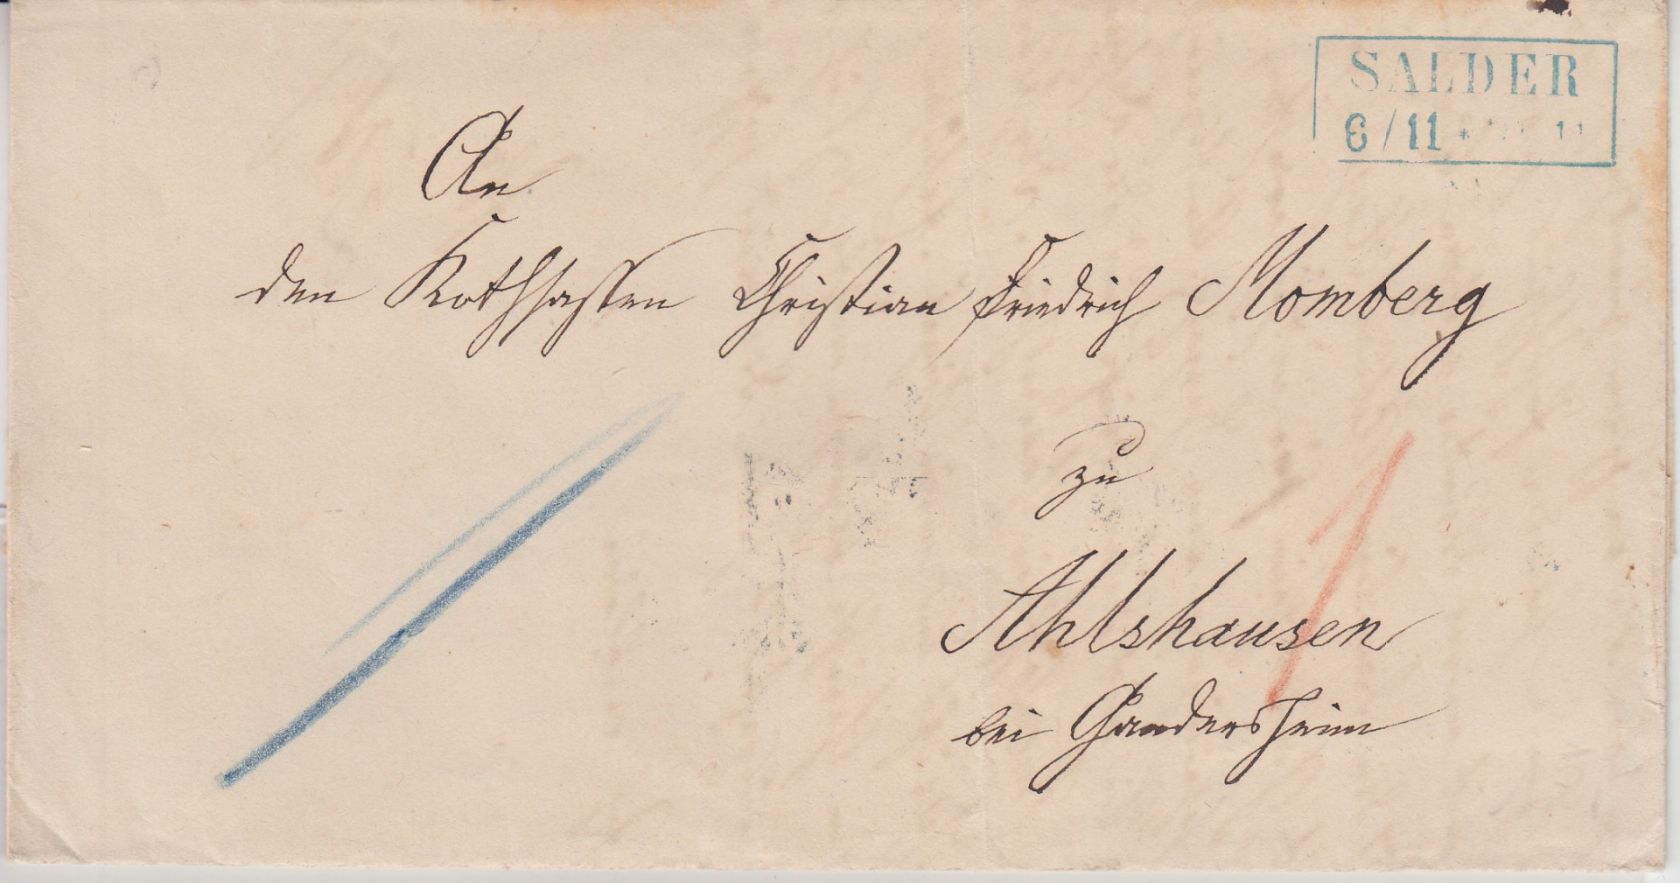 SALDER
6/11 *
An
den Kothsassen Christian Friedrich Momberg
zu
Ahlshausen
bei Gandersheim